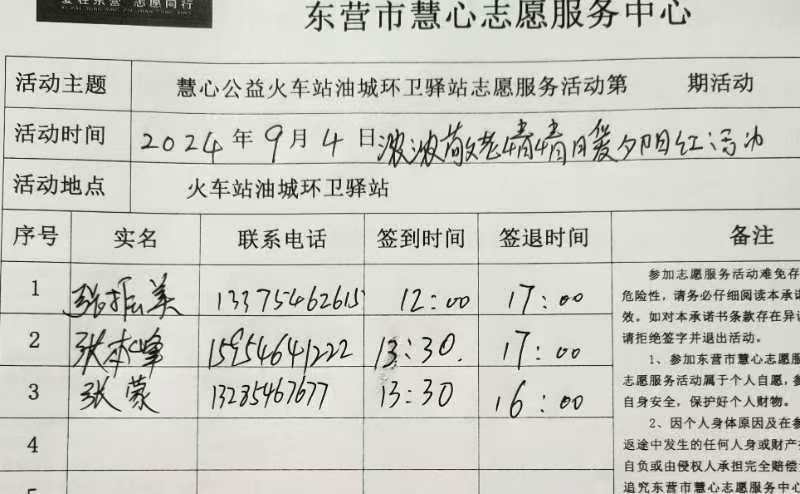 爱在东营 志愿同行
东营市慧心志愿服务中心
活动主题 慧心公益火车站油城环卫驿站志愿服务活动第 期活动
活动时间 2024年9月4日浓浓敬老情情暖夕阳红活动
活动地点 火车站油城环卫驿站
序号 实名 联系电话 签到时间 签退时间 备注
1 张振美 13375462615 12:00 17:00
2 张本峰 15954641222 13:30. 17:00
3 张蒙 13285467677 13:30 16:00
4
参加志愿服务活动难免存
危险性，请务必仔细阅读本承诺
效。如对本承诺书条款存在异议
请拒绝签字并退出活动。
1、参加东营市慧心志愿服
志愿服务活动属于个人自愿，参
自身安全，保护好个人财物。
2、因个人身体原因及在参
返途中发生的任何人身或财产
自负或由侵权人承担完全赔偿
追究东营市慧心志愿服务中心